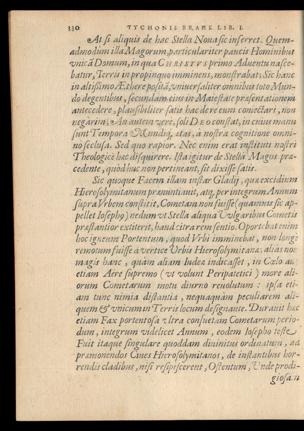 330 TYCHONIS BRAHE LIB. I.
At si aliquis de hac Stella Noua sic inferret. Quem-
admodum illa Magorum, particulariter paucis Hominibus
vnicâ Domum, in qua CHRISTVS primo Aduentu nasce-
batur, Terris in propinquo imminens, monstrabat; Sic hanc
in altissimo Æthere positâ, vniuersaliter omnibus toto Mun-
do degentibus, secundam eius in Maiestate præsentationem
antecedere, plausibiliter satis hac de re eum coniectare, non
negârim; An autem verò, soli DEO constat, in cuius manu
sunt Tempora & Mundus, stat, à nostra cognitione omni-
no seclusa. Sed quo rapior. Nec enim erat instituti nostri
Theologicè hæc disquirere. Ista igitur de Stella Magos præ-
cedente, quòd huc non pertineat, sic dixisse satis.
Sic quoque Facem illam instar Gladij, quæ excidium
Hierosolymitanum prænuntiauit, atq, per integrum Annum
supra Vrbem constitit, Cometam non fuisse (quamuis sic ap-
pellet Iosepho) nedum vt Stella aliqua Vulgaribus Cometis
præstantior extiterit, haud citra rem sentio. Oportebat enim
hoc igneum Portentum, quod Vrbi imminebat, non longè
remotum fuisse à vertice Vrbis Hierosolymitanæ: alias non
magis hanc, quàm aliam Iudea indicasset, in Cælo aut
etiam Aëre supremo (vt volunt Peripatetici) more ali-
orum Cometarum motu diurno reuolutum: ipsa eti-
am tunc nimia distantia, nequaquàm peculiarem ali-
quem & vnicum in Terris locum designante. Durauit hæc
etiam Fax portentosa vltra consuetam Cometarum perio-
dum, integrum videlicet Annum, eodem Iosepho teste
Fuit itaque singulare quoddam diuinitus ordinatum, ad
præmonendos Ciues Hierosolymitanos, de instantibus hor-
rendis cladibus, nisi respiscerent, Ostentum, Vnde prodi-
giosa n